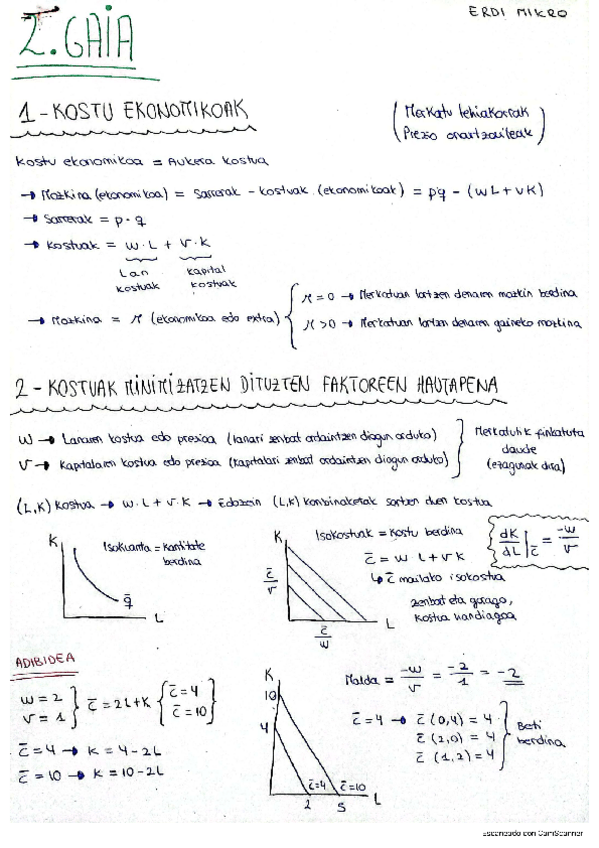 ERDI MIKRO
2. GAIA
1 - KOSTU EKONOMIKOAK
(Merkatu lehiakorrak
Prezio onartzaileak)
Kostu ekonomikoa = Aukera kostua
→ Mozkina (ekonomikoa) = Sarrerak - kostuak (ekonomikoak) = pq - (wL + vK)
→ Sarrerak = p · q
→ Kostuak = w · L + v · K
Lan kostuak
kapital kostuak
→ Mozkina = π (ekonomikoa edo extra)
π = 0 → Merkatuan lortzen denaren mozkin berdina
π > 0 → Merkatuan lortzen denaren gaineko mozkina
2 - KOSTUAK MINIMIZATZEN DITUZTEN FAKTOREEN HAUTAPENA
w → Lanaren kostua edo prezioa (lanari zenbat ordaintzen diogun orduko)
v → Kapitalaren kostua edo prezioa (kapitalari zenbat ordaintzen diogun orduko)
Merkatutik finkatuta
daude
(ezagunak dira)
(L,K) kostua → w · L + v · K → Edozein (L,K) konbinaketak sortzen duen kostua
K
Isokuanta = kantitate
berdina
q̄
L
K
c̄/v
c̄/w
L
Isokostuak = kostu berdina
c̄ = w · L + v K
↳ c̄ mailako isokostua
zenbat eta gorago,
kostua handiagoa
dK/dL |c̄ = -w/v
ADIBIDEA
w = 2
v = 1
c̄ = 2L + K
c̄ = 4
c̄ = 10
c̄ = 4 → K = 4 - 2L
c̄ = 10 → K = 10 - 2L
K
10
4
c̄=4
c̄=10
2
5
L
Malda = -w/v = -2/1 = -2
c̄ = 4 → c̄ (0,4) = 4
c̄ (2,0) = 4
c̄ (1,2) = 4
Beti
berdina
Escaneado con CamScanner